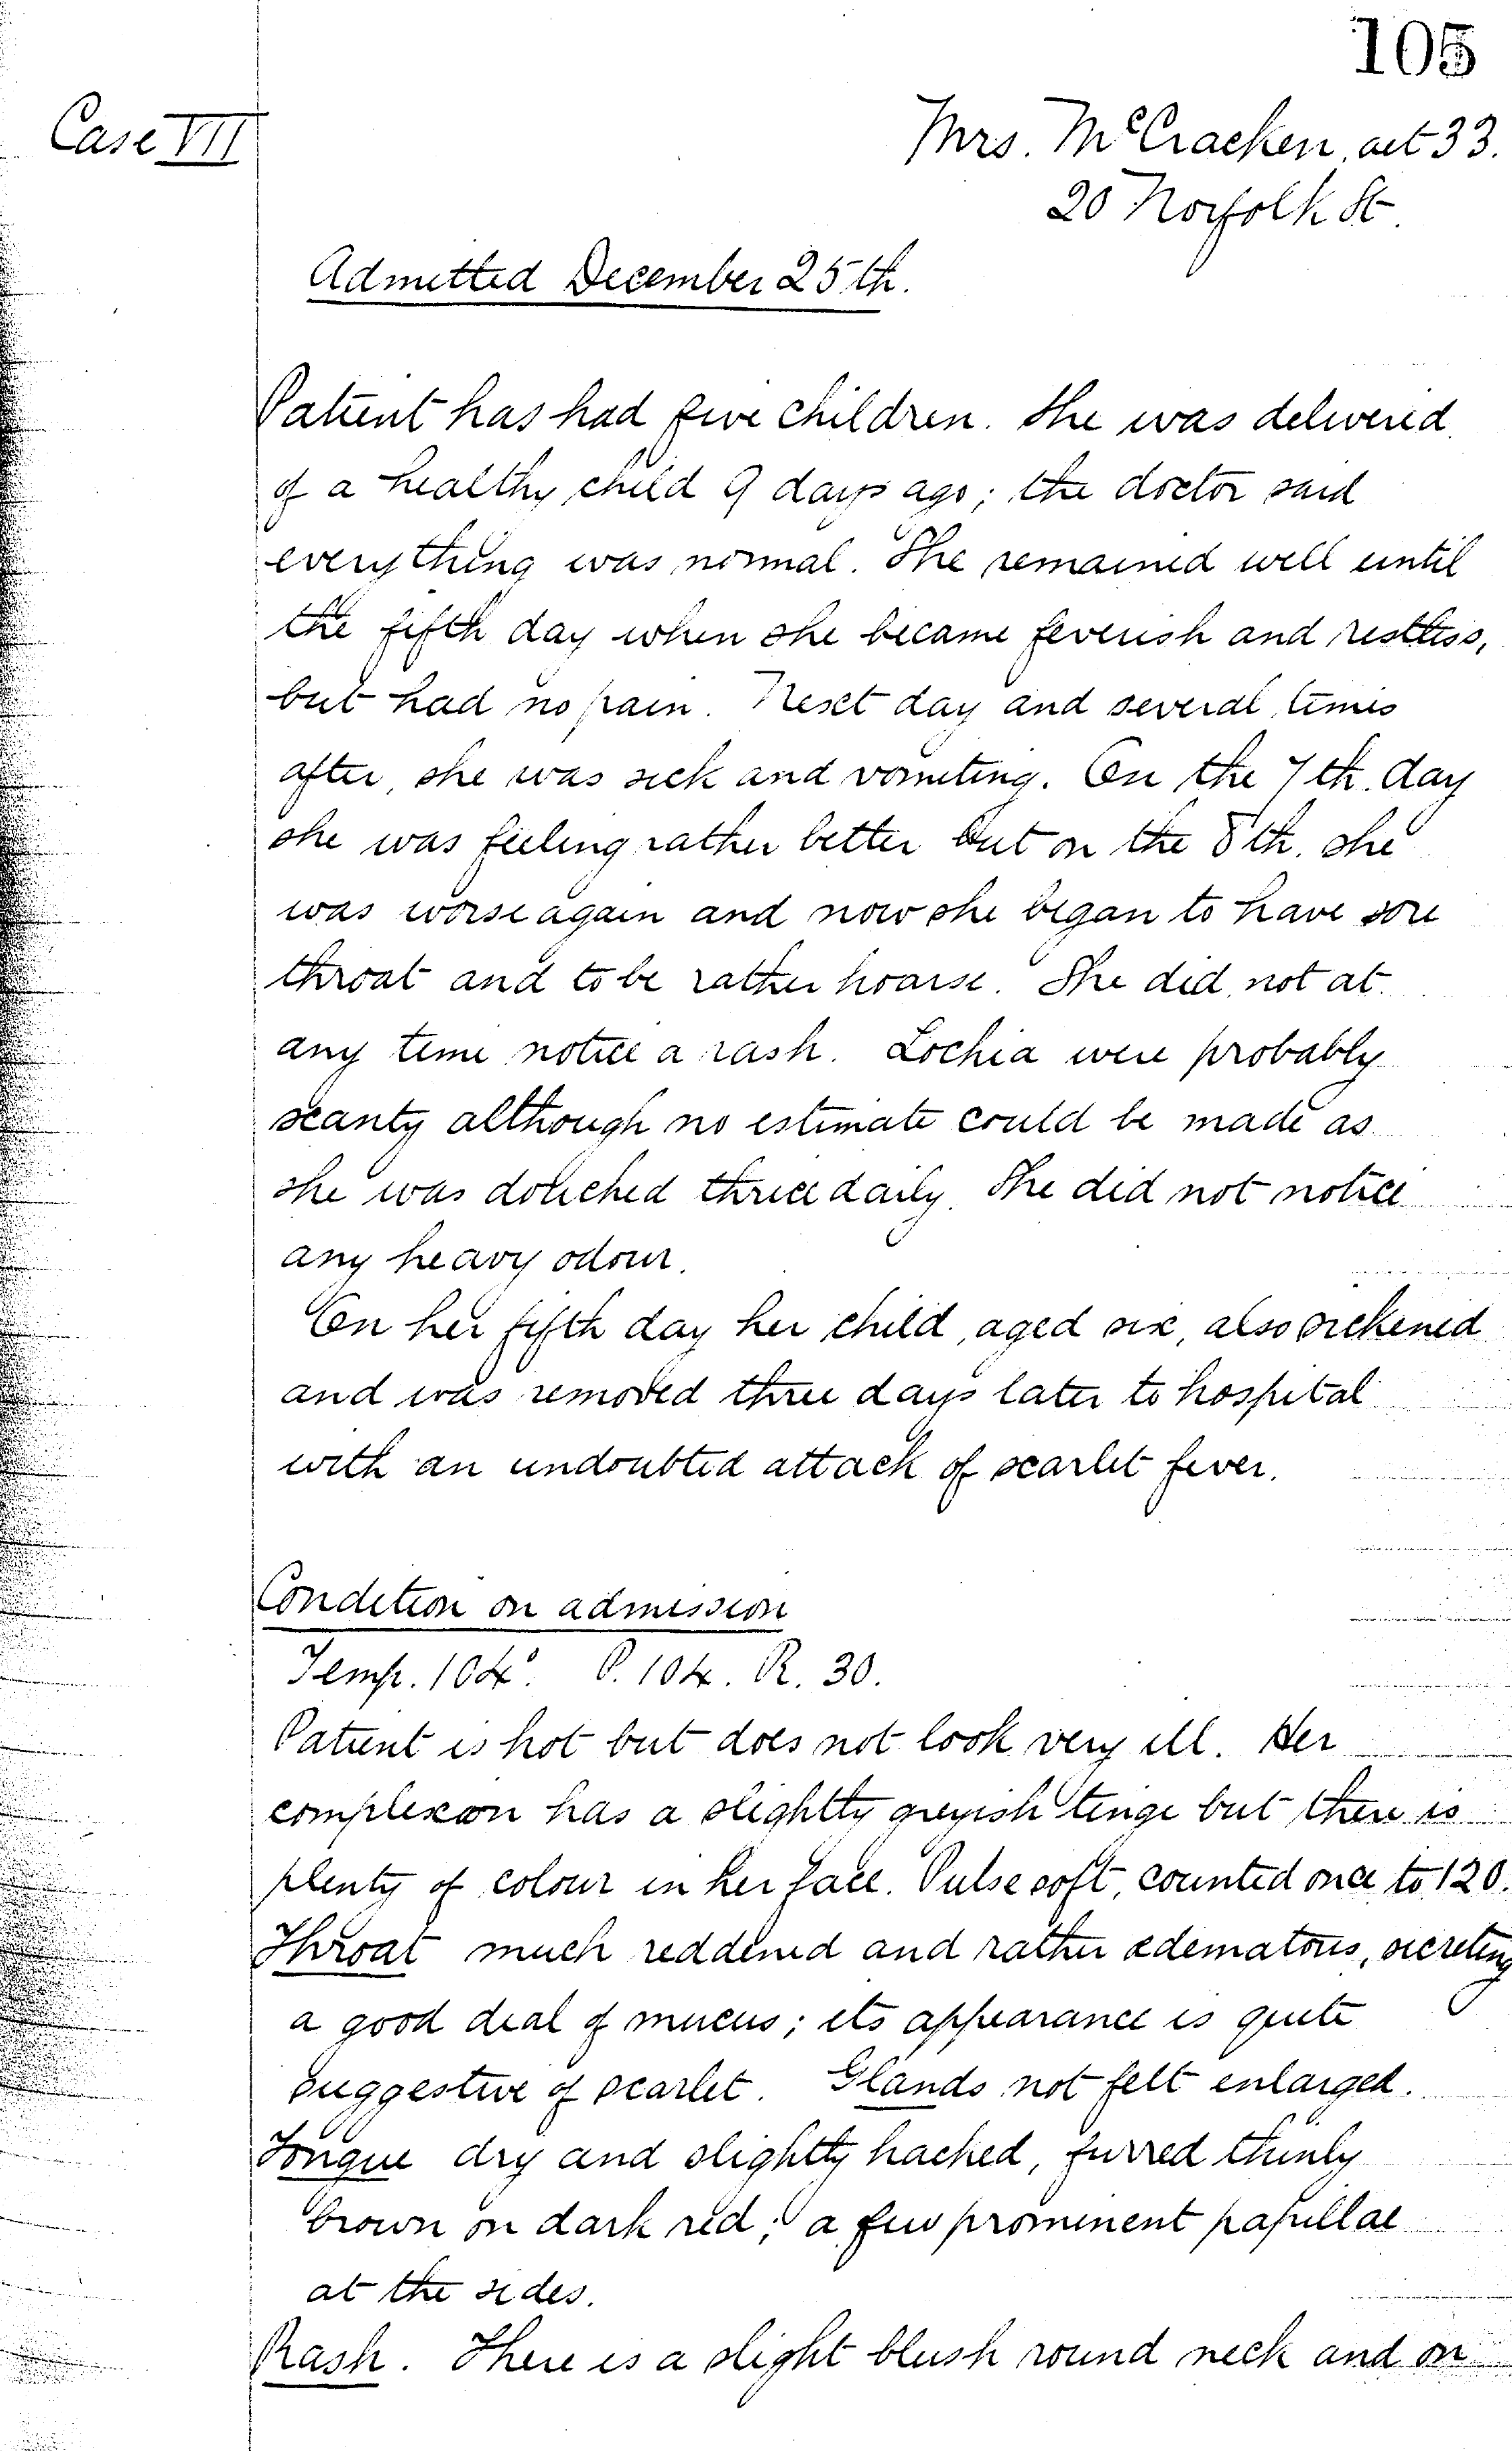 105
Case VII
Mrs. McCracken, aet 33.
20 Norfolk St.
Admitted December 25th.
Patient has had five children. She was delivered
of a healthy child 9 days ago; the doctor said
everything was normal. She remained well until
the fifth day when she became feverish and restless,
but had no pain. Next day and several times
after, she was sick and vomiting. On the 7th. day
she was feeling rather better but on the 8th. she
was worse again and now she began to have sore
throat and to be rather hoarse. She did not at
any time notice a rash. Lochia were probably
scanty although no estimate could be made as
she was douched thrice daily. She did not notice
any heavy odour.
On her fifth day her child, aged six, also sickened
and was removed three days later to hospital
with an undoubted attack of scarlet fever.
Condition on admission
Temp. 104°. P. 104. R. 30.
Patient is hot but does not look very ill. Her
complexion has a slightly greyish tinge but there is
plenty of colour in her face. Pulse soft, counted once to 120.
Throat much reddened and rather œdematous, secreting
a good deal of mucus; its appearance is quite
suggestive of scarlet. Glands not felt enlarged.
Tongue dry and slightly hacked, furred thinly
brown on dark red; a few prominent papillae
at the sides.
Rash. There is a slight blush round neck and on